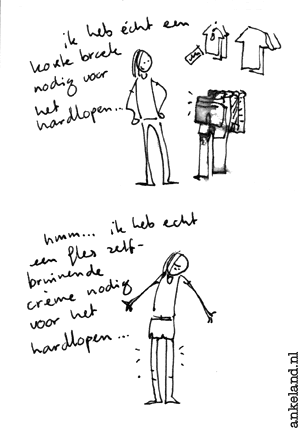 ik heb écht een
korte broek
nodig voor
het
hardlopen...
hmm... ik heb echt
een fles zelf-
bruinende
crème nodig
voor het
hardlopen...
ankeland.nl